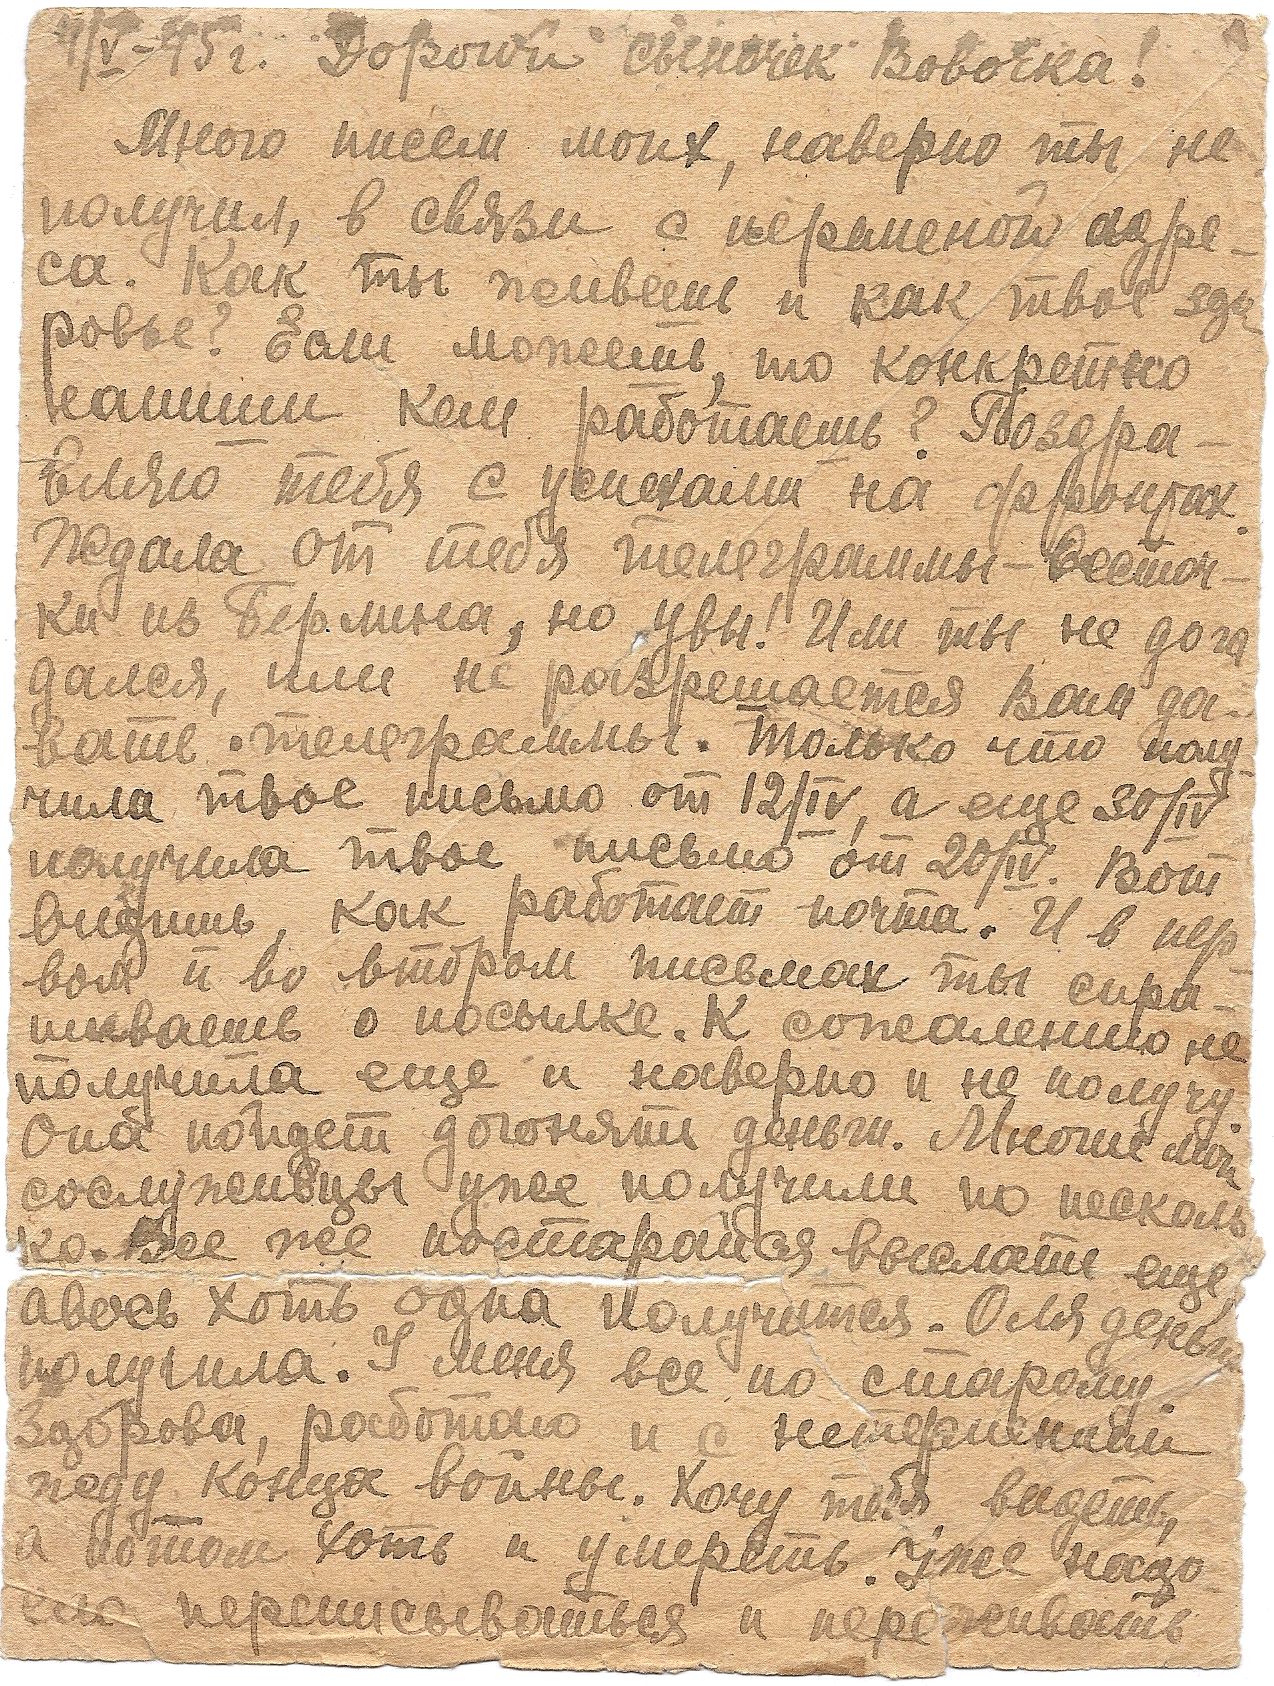 4/V-45г. Дорогой сыночек Вовочка!
Много писем моих, наверно ты не
получил, в связи с переменой адре-
са. Как ты живешь и как твое здо
ровье? Если можешь, то конкретно
напиши кем работаешь? Поздра-
вляю тебя с успехами на фронтах.
Ждала от тебя телеграммы-весточ-
ки из Берлина, но увы! Или ты не дога
дался, или не разрешается Вам да-
вать телеграммы. Только что полу
чила твое письмо от 12/IV, а еще 30/IV
получила твое письмо от 20/IV. Вот
видишь, как работает почта. И в пер
вом и во втором письмах ты спра-
шиваешь о посылке. К сожалению не
получила еще и наверно и не получу.
Она пойдет догонять деньги. Многие мои
сослуживцы уже получили по несколь
ко. Все же постарайся выслать еще
авось хоть одна получится. Оля деньги
получила. У меня все по старому.
Здорова, работаю и с нетерпением
жду конца войны. Хочу тебя видеть,
а потом хоть и умереть. Уже надо
ело переписываться и переживать